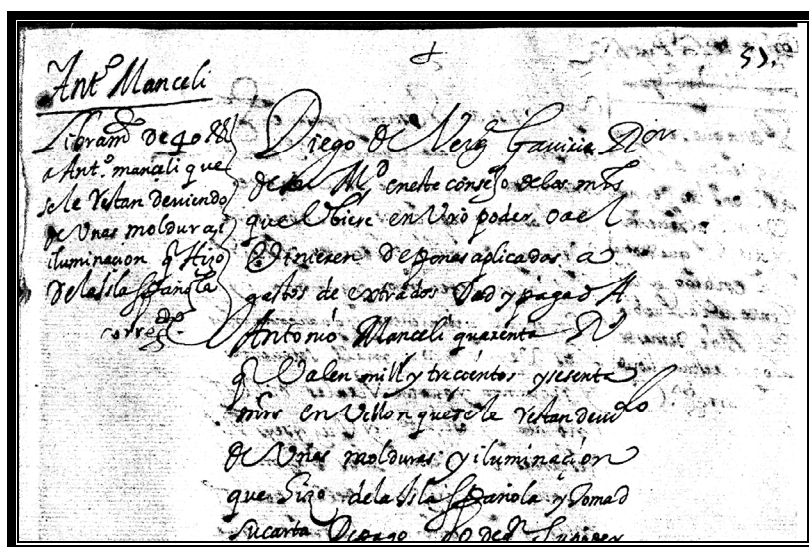 51.
Ant.º Manceli
libram.º de 40 RR
a Ant.º manceli que
se le restan deviendo
de Unas molduras,
iluminacion q Hizo
de la Isla Española
correg.do
Diego de Verg.ª Gaviria
de su M.d en este consejo de los mrs
que Ubiere en Vro poder o a el
Vinieren de penas aplicadas a
gastos de extrados Dad y pagad A
Antonio Manceli quarenta RR
q Valen mill y trecientos y sesenta
mrs en Vellon que se le restan devi.do
de Unas molduras y iluminacion
que hizo de la Isla Española y tomad
su carta de pago